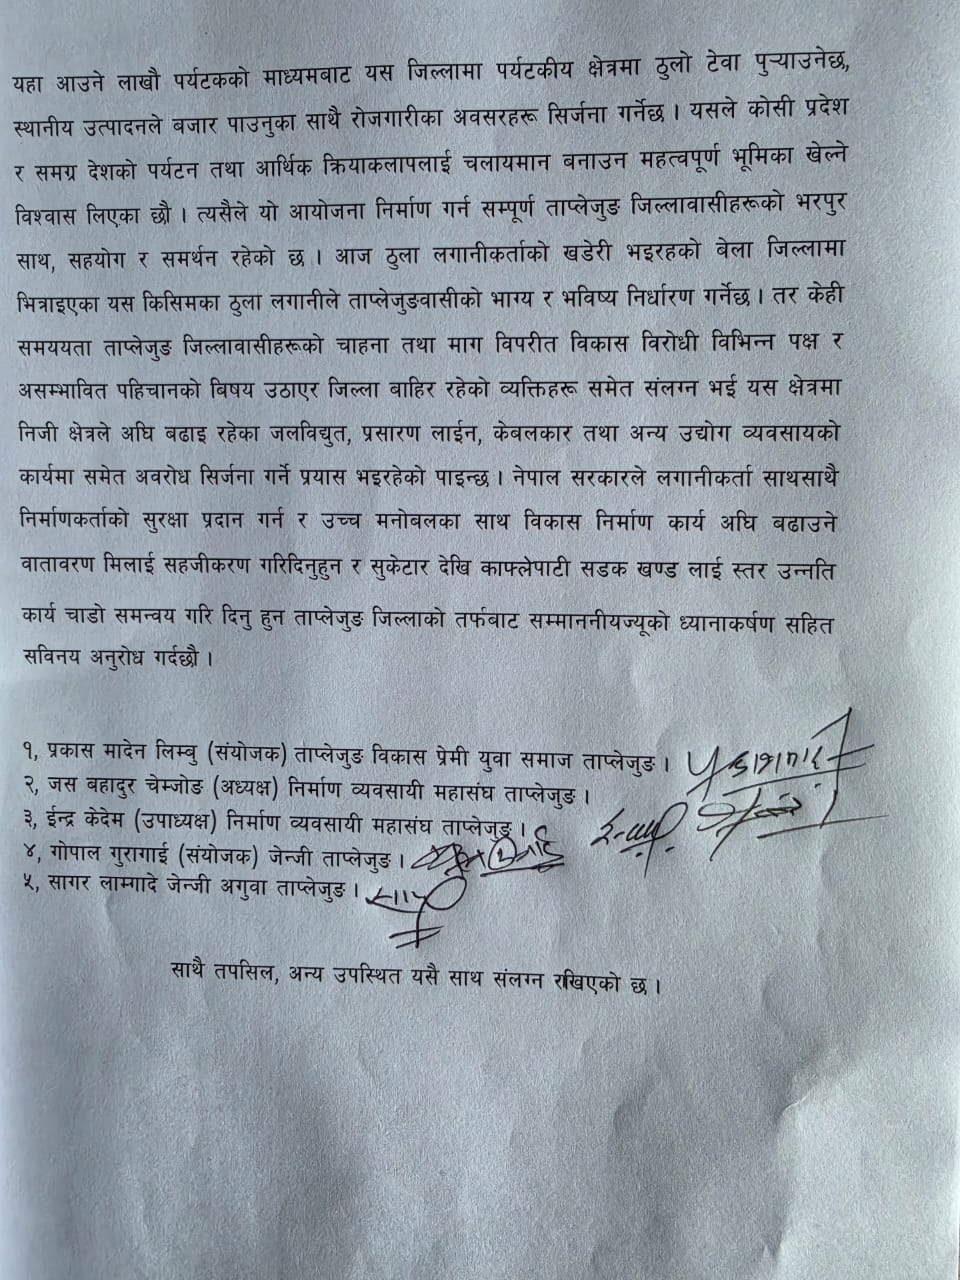 यहा आउने लाखौ पर्यटकको माध्यमबाट यस जिल्लामा पर्यटकीय क्षेत्रमा ठुलो टेवा पुऱ्याउनेछ,
स्थानीय उत्पादनले बजार पाउनुका साथै रोजगारीका अवसरहरू सिर्जना गर्नेछ । यसले कोसी प्रदेश
र समग्र देशको पर्यटन तथा आर्थिक क्रियाकलापलाई चलायमान बनाउन महत्वपूर्ण भूमिका खेल्ने
विश्वास लिएका छौ । त्यसैले यो आयोजना निर्माण गर्न सम्पूर्ण ताप्लेजुङ जिल्लावासीहरूको भरपुर
साथ, सहयोग र समर्थन रहेको छ । आज ठुला लगानीकर्ताको खडेरी भइरहको बेला जिल्लामा
भित्राइएका यस किसिमका ठुला लगानीले ताप्लेजुङवासीको भाग्य र भविष्य निर्धारण गर्नेछ । तर केही
समययता ताप्लेजुङ जिल्लावासीहरूको चाहना तथा माग विपरीत विकास विरोधी विभिन्न पक्ष र
असम्भावित पहिचानको बिषय उठाएर जिल्ला बाहिर रहेको व्यक्तिहरू समेत संलग्न भई यस क्षेत्रमा
निजी क्षेत्रले अघि बढाइ रहेका जलविद्युत, प्रसारण लाईन, केबलकार तथा अन्य उद्योग व्यवसायको
कार्यमा समेत अवरोध सिर्जना गर्ने प्रयास भइरहेको पाइन्छ । नेपाल सरकारले लगानीकर्ता साथसाथै
निर्माणकर्ताको सुरक्षा प्रदान गर्न र उच्च मनोबलका साथ विकास निर्माण कार्य अघि बढाउने
वातावरण मिलाई सहजीकरण गरिदिनुहुन र सुकेटार देखि काफ्लेपाटी सडक खण्ड लाई स्तर उन्नति
कार्य चाडो समन्वय गरि दिनु हुन ताप्लेजुङ जिल्लाको तर्फबाट सम्माननीयज्यूको ध्यानाकर्षण सहित
सविनय अनुरोध गर्दछौ ।
१, प्रकास मादेन लिम्बु (संयोजक) ताप्लेजुङ विकास प्रेमी युवा समाज ताप्लेजुङ ।
२, जस बहादुर चेम्जोङ (अध्यक्ष) निर्माण व्यवसायी महासंघ ताप्लेजुङ ।
३, ईन्द्र केदेम (उपाध्यक्ष) निर्माण व्यवसायी महासंघ ताप्लेजुङ ।
४, गोपाल गुरागाई (संयोजक) जेन्जी ताप्लेजुङ ।
५, सागर लाम्गादे जेन्जी अगुवा ताप्लेजुङ ।
साथै तपसिल, अन्य उपस्थित यसै साथ संलग्न रखिएको छ ।